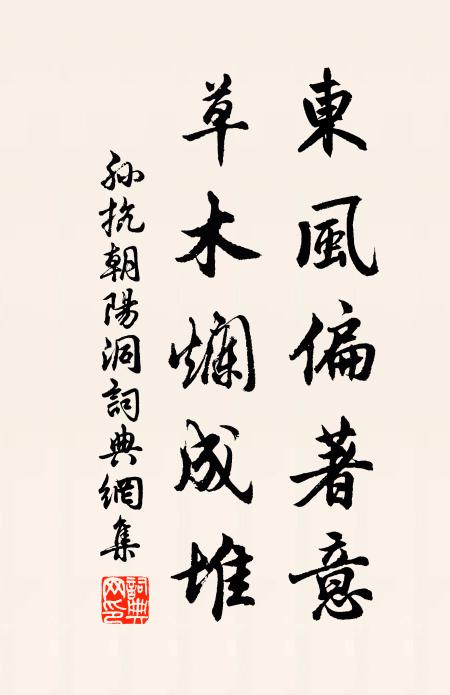 東風偏著意
草木爛成堆
孙抗朝陽洞詞典網集
詞典
网印